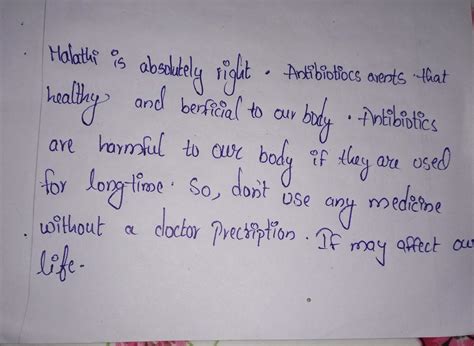 Malathi is absolutely right. Antibiotiocs arents that
healthy and benficial to our body. Antibiotics
are harmful to our body if they are used
for long-time. So, don't use any medicine
without a doctor Precription. If may affect ou
life.